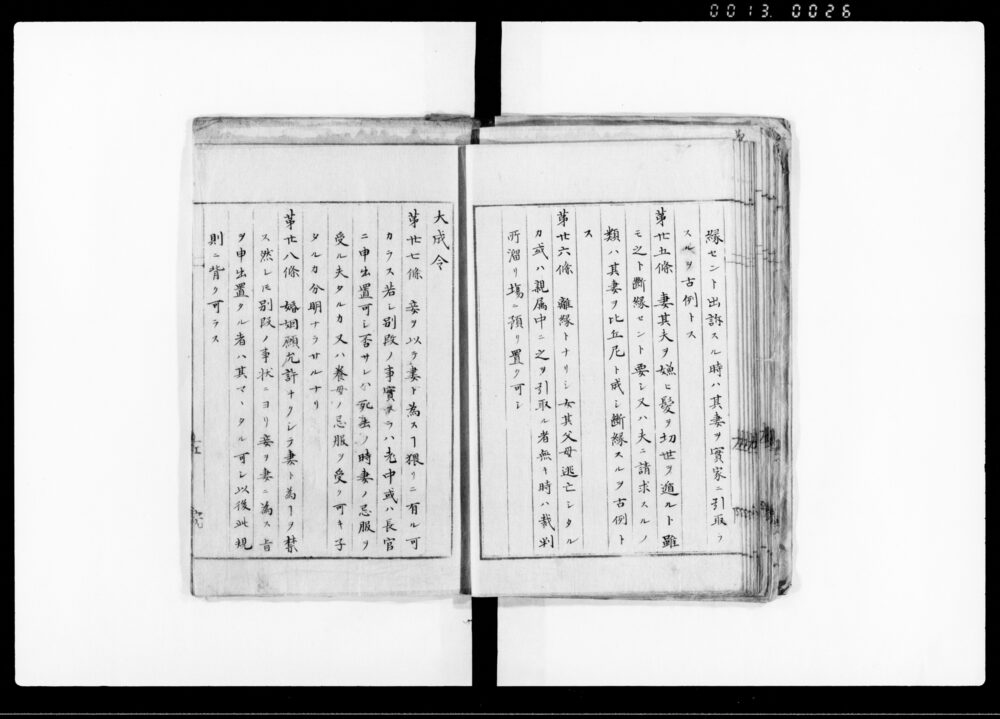 0013. 0026
縁セント出訴スル時ハ其妻ヲ實家ニ引取ラ
スルヲ古例トス
第廿五條 妻其夫ヲ嫌ヒ髪ヲ切世ヲ遁ルト雖
モ之ト斷縁セント要シ又ハ夫ニ請求スルノ
類ハ其妻ヲ比丘尼ト成シ斷縁スルヲ古例ト
ス
第廿六條 離縁トナリシ女其父母逃亡シタル
カ或ハ親属中ニ之ヲ引取ル者無キ時ハ裁判
所溜リ塲ニ預リ置ク可シ
大成令
第廿七條 妾ヲ以テ妻ト為スヿ猥リニ有ル可
カラス若シ別段ノ事實アラハ老中或ハ長官
ニ申出置可シ否サレハ死去ノ時妻ノ忌服ヲ
受ル夫タルカ又ハ養母ノ忌服ヲ受ク可キ子
タルカ分明ナラサルナリ
第廿八條 婚姻願允許ナクシテ妻ト為ヿヲ禁
ス然レ𪜈別段ノ事状ニヨリ妾ヲ妻ニ為ス旨
ヲ申出置タル者ハ其マヽタル可シ以後此規
則ニ背ク可ラス